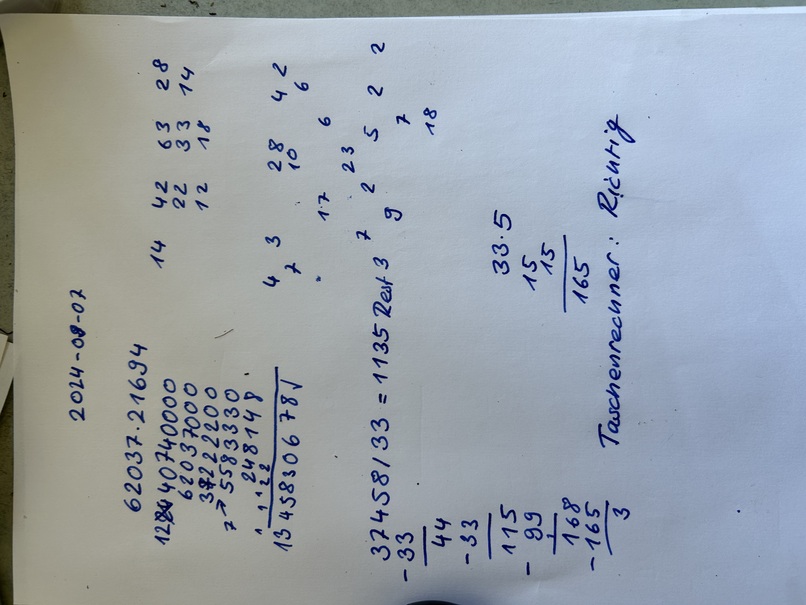 2024-08-07
62037.21694
124407 40000
62037000
37222200
7→ 5583330
248148
1 1 1 2 2
1345830678√
14 42 63 28
22 33 14
12 18
4 3 28 4 2
7 10 6
17 6
23
7 2 5 2 2
9 7
18
37458/33 = 1135 Rest 3
-33
44
-33
115
- 99
168
-165
3
33.5
15
15
165
Taschenrechner: Richtig